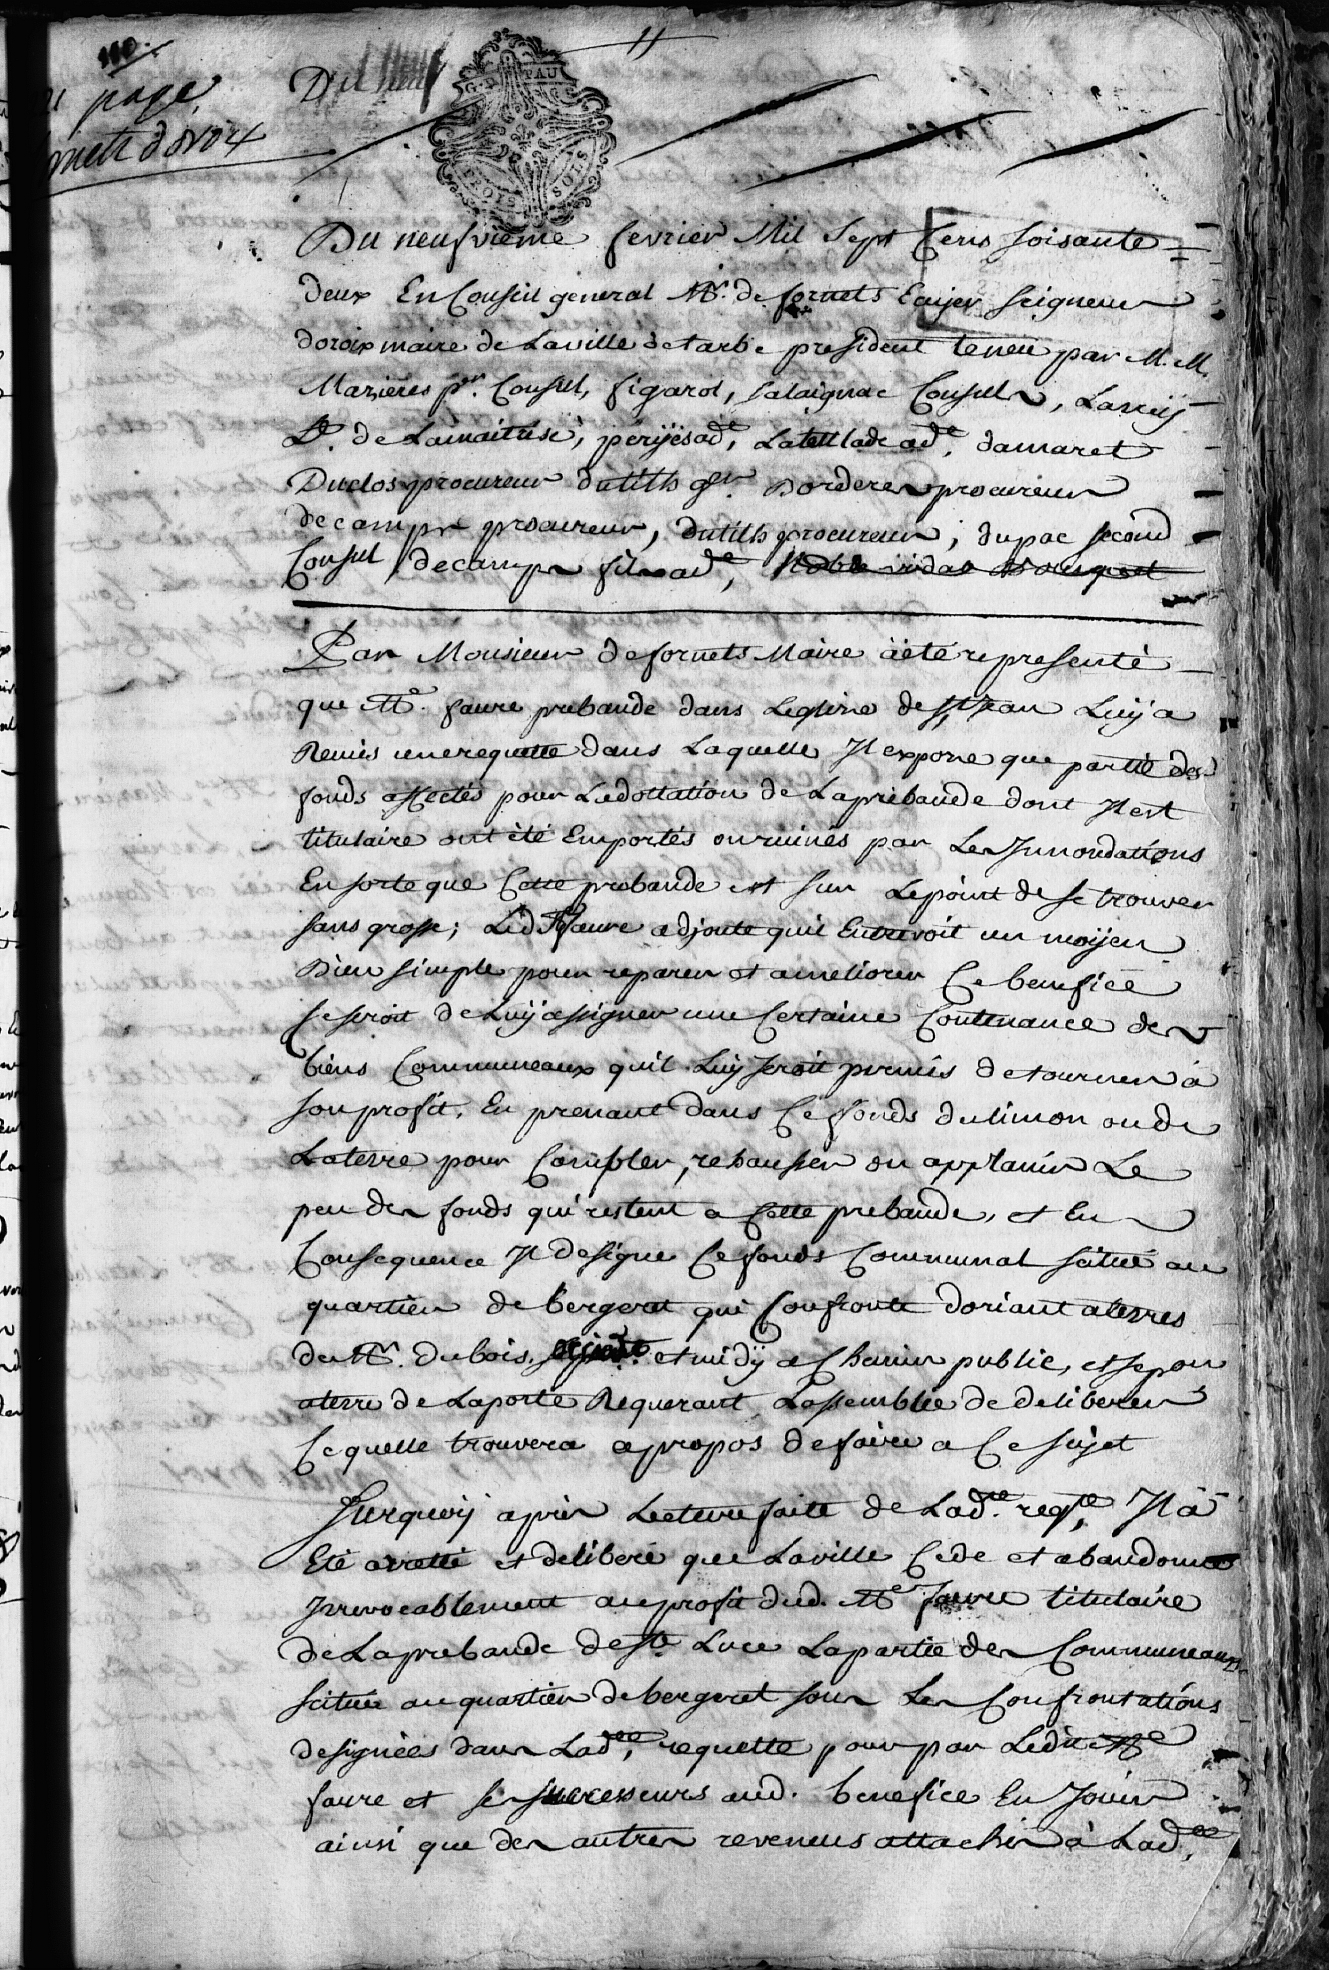 110.
11
page
fornetz doroix
Du
G. D. PAU
TROIS SOLS
Du neufvieme fevrier Mil Sept Cens soisante
deux En Conseil general Mr. de fornets Ecuyer seigneur
doroix maire de Laville de tarbe president teneu par M.M.
Mazieres pr. Consul, figarol, salaignac Consuls, Lanuy
Lt. de Lamaitrise, peryesadt, Latelladeadt, damaret
Duclos procureur dutilh gr. Borderes procureur
decamps procureur, dutilh procureur, dupac second
Consul decamps fils adt, Noble vidal Bousquet
Par Monsieur defornets Maire àété representé
que Me. faure prebande dans Leglise de St Jean Luy a
Remis unerequette dans Laquelle Il expose que partie des
fonds affectés pour Ladottation de Laprebande dont Il est
titulaire ont été Emportés ouruinés par Les Innondations
Ensorte que Cette prebande est sur Lepoint de se trouver
sans grosse; Led. faure adjoute quil Entrevoit un moyen
Bien simple pour reparer et ameliorer Ce benefice
se seroit de Luy assigner une Certaine Contenance des
biens Communeaux quil Luy seroit permis detourner à
son profit, En prenant dans Ce fonds dulimon ou de
Laterre pour Combler, rehausser ou applanir Le
peu des fonds qui restent a Cette prebande, et En
Consequence Il designe Ce fonds Communal scitué au
quartier de bergeret qui Confronte doriant aterres
de Mr. dubois, et midy a Chemin public, et sepon
aterre de Laporte Requerant Lassemblée de deliberer
Cequelle trouvera apropos defaire a Ce sujet
Surquoy après Lecture faite de Lade. reqte, Il à
Eté arretté et deliberé que Laville Cede et abandonne
Irrevocablement auprofit dud. Me faure titulaire
de Laprebande de ste Luce Lapartie des Communeaux
scitués auquartier debergeret sous Les Confrontations
designées dans Lade, requette pour par Ledit Me
faure et ses successeurs aud. benefice En Jouir
ainsi que des autres reveneus attachés à Lade,